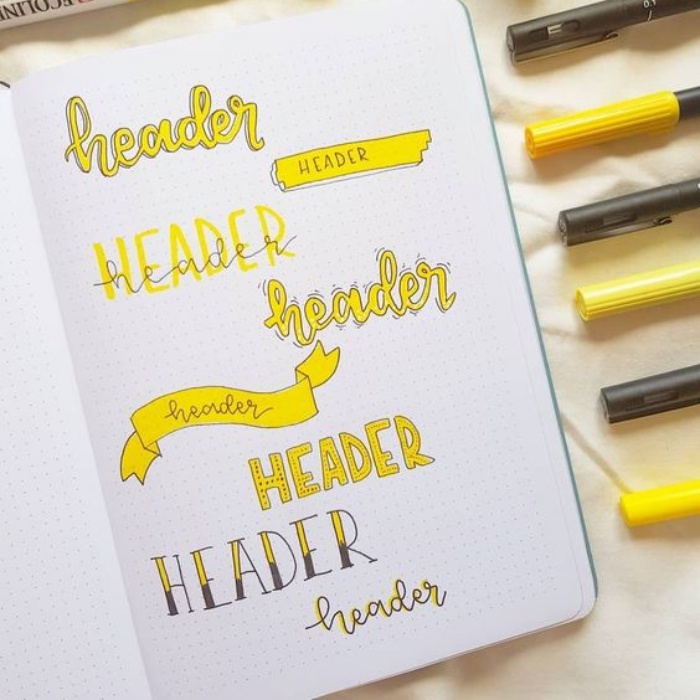 ECOLINE
header
HEADER
HEADER
header
header
header
HEADER
HEADER
header